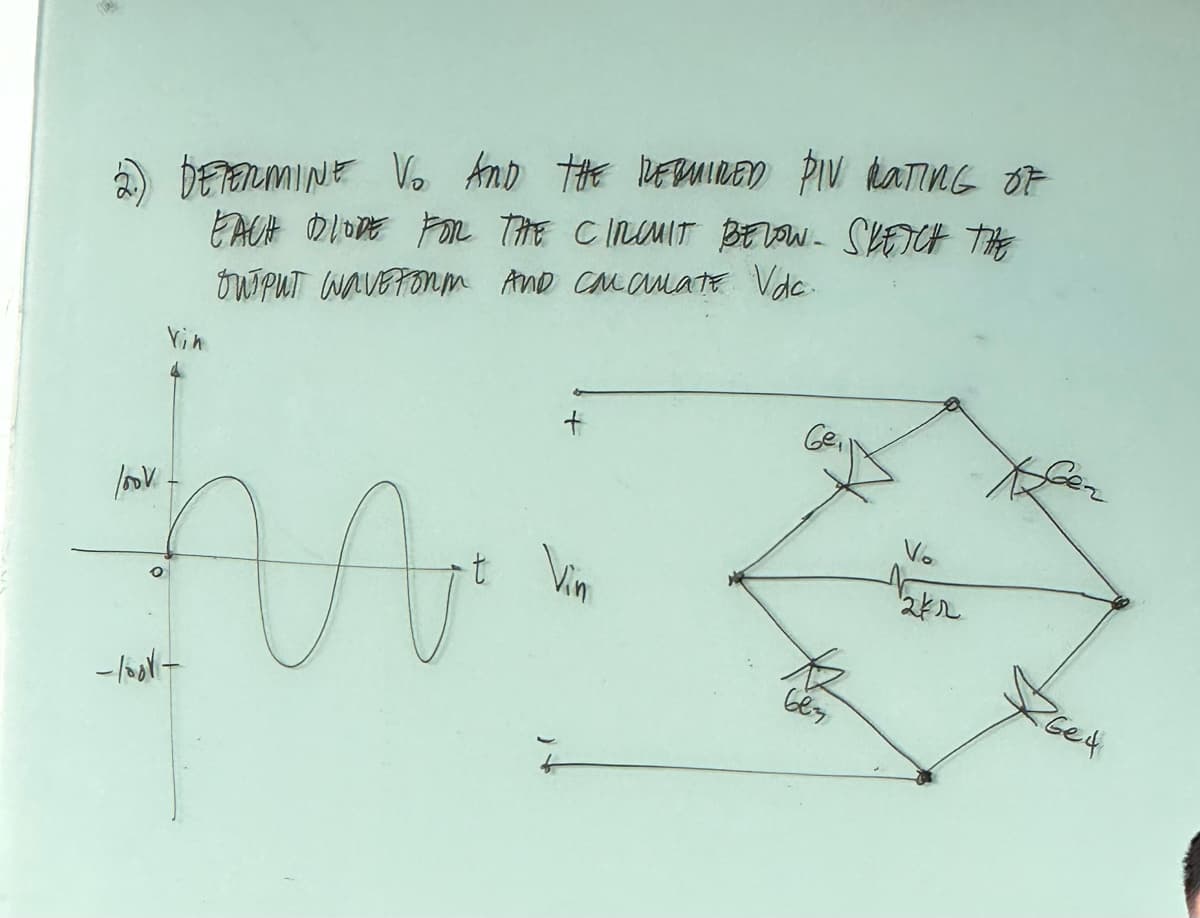 2.) DETERMINE Vo AND THE REQUIRED PIV RATING OF
EACH DIODE FOR THE CIRCUIT BELOW. SKETCH THE
OUTPUT WAVEFORM AND CALCULATE Vdc.
Vin
100V
0
-100V
t
+
Vin
-
Ge1
Ge2
Vo
2kΩ
Ge3
Ge4